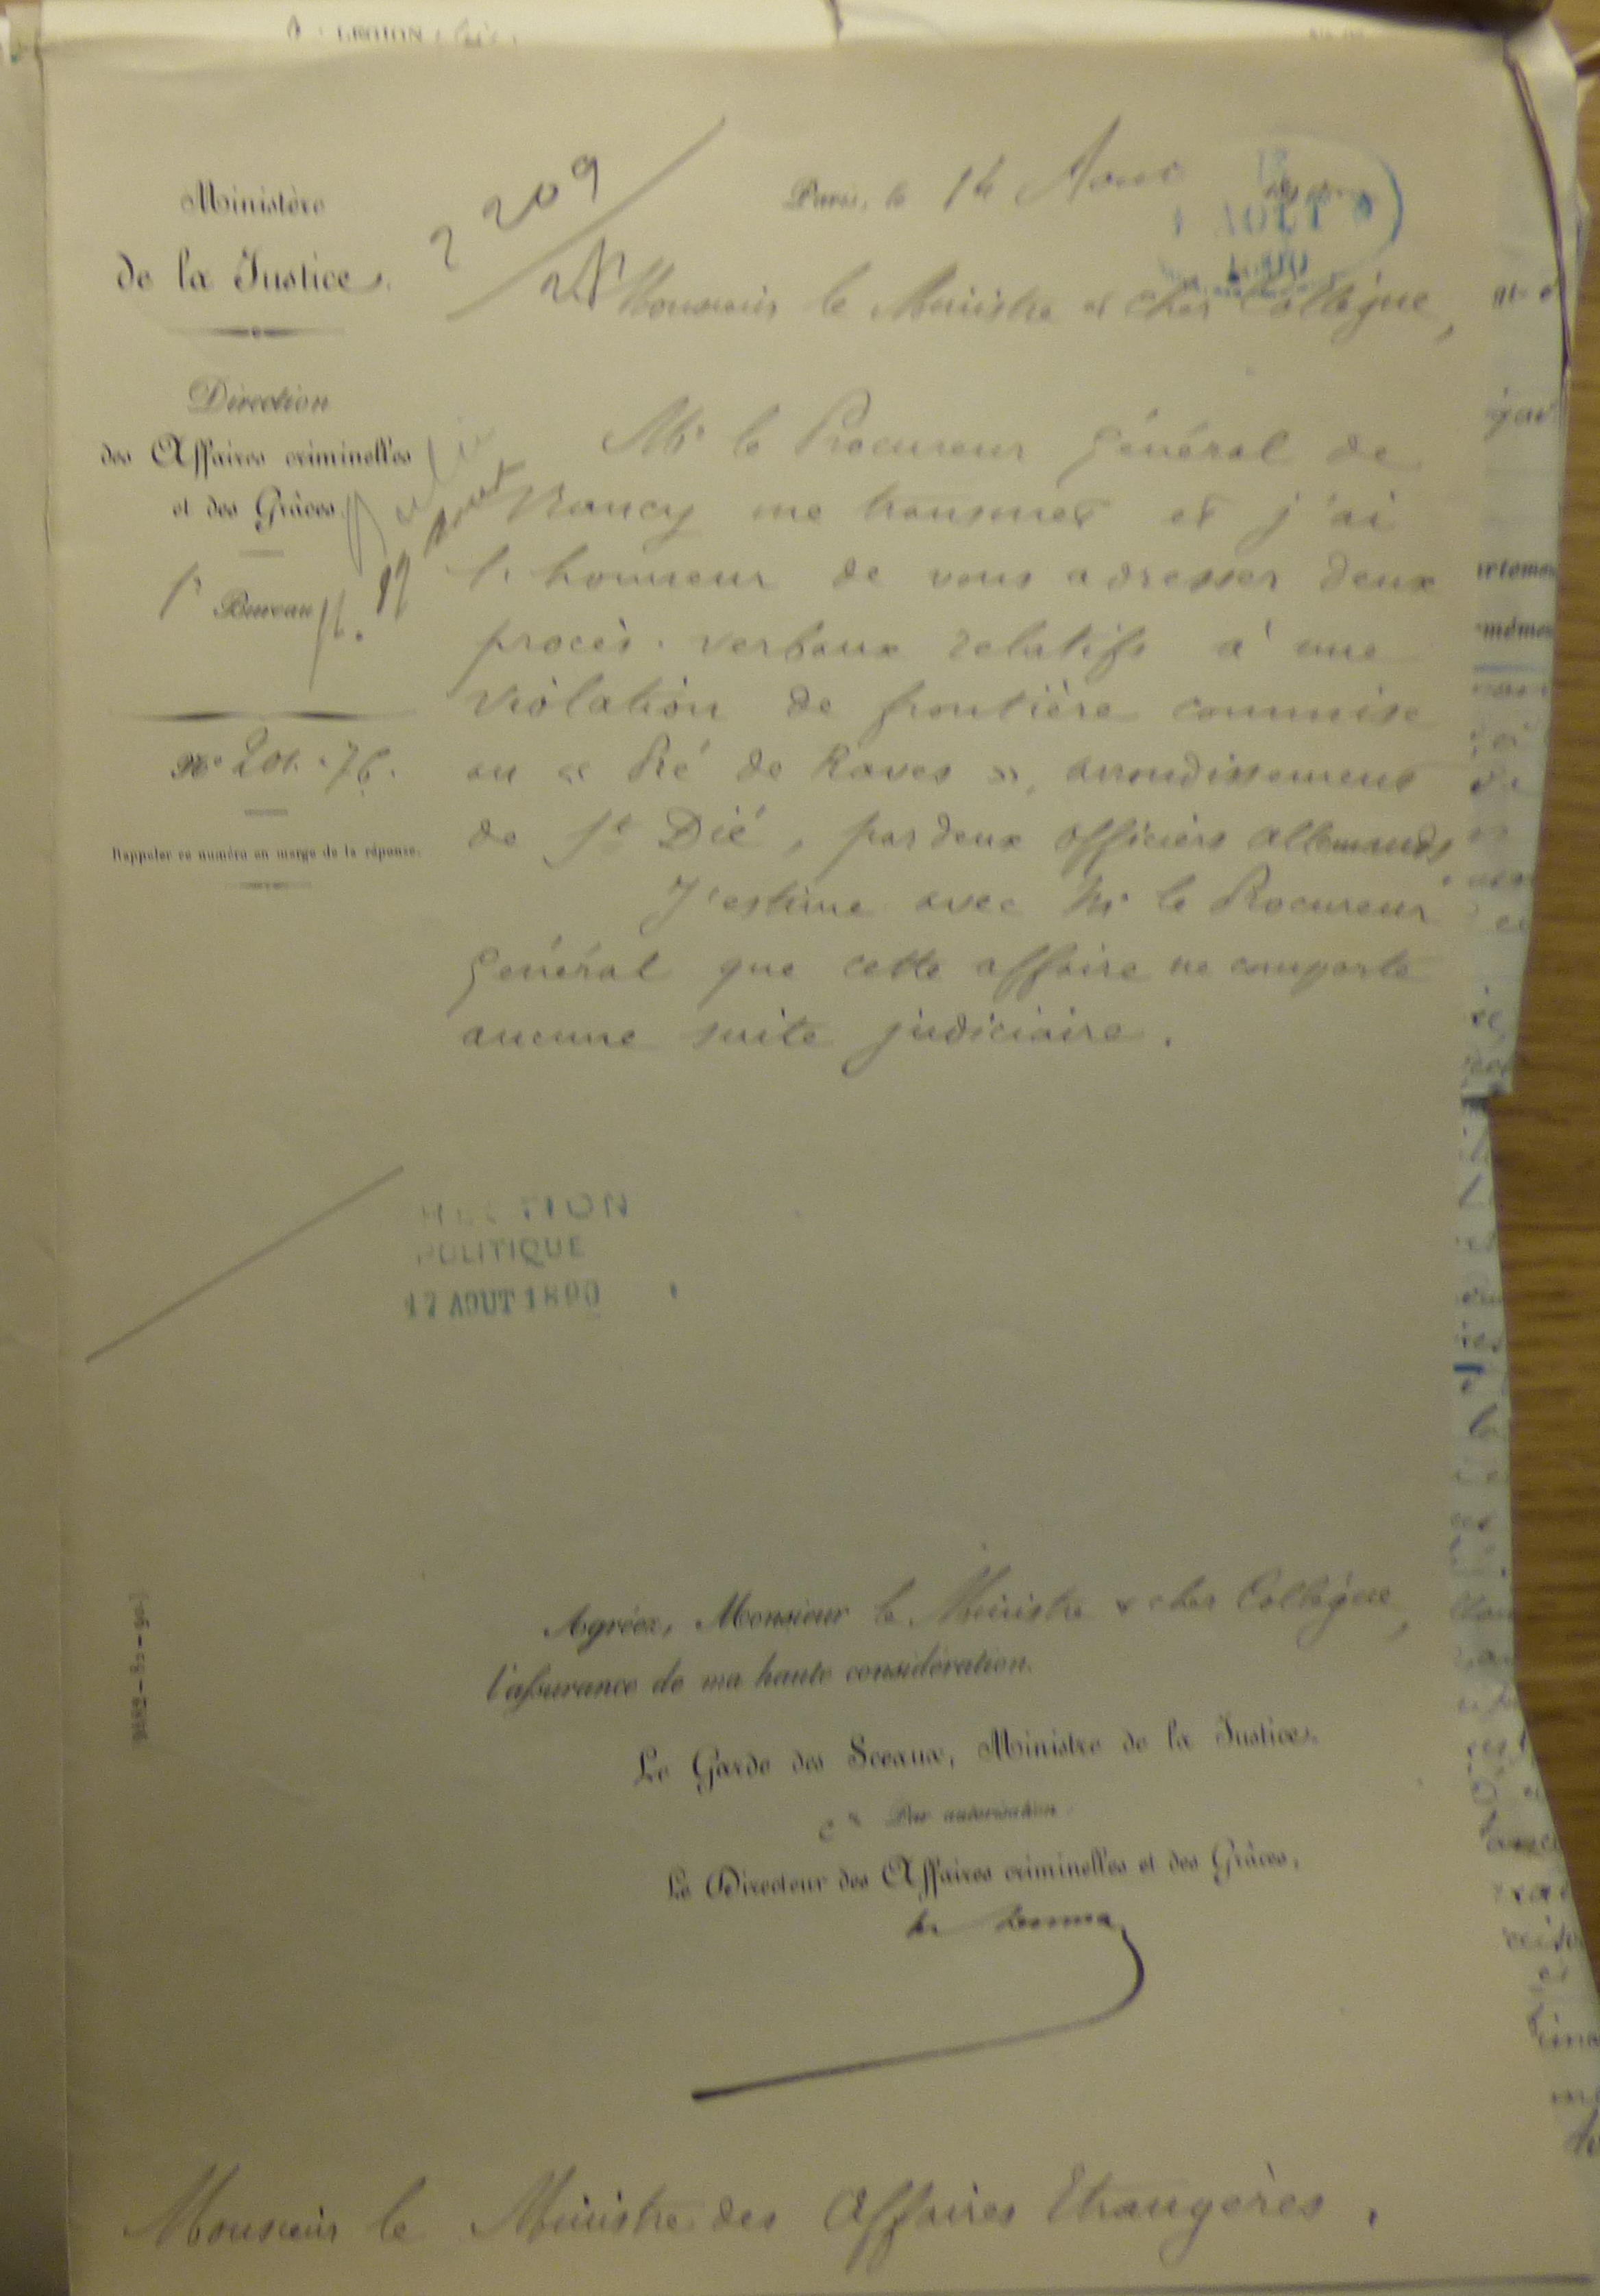 Ministère
de la Justice.
Direction
des Affaires criminelles
et des Grâces.
1er Bureau
No 201. 76.
Rappeler ce numéro en marge de la réponse.
2209
Paris, le 14 Aout
AOUT
Monsieur le Ministre et cher Collègue,
Mr le Procureur Général de
Nancy me transmet et j'ai
l'honneur de vous adresser deux
procès-verbaux relatifs à une
violation de frontière commise
au « Pré de Raves », arrondissement
de St Dié, par deux officiers allemands.
J'estime avec Mr le Procureur
Général que cette affaire ne comporte
aucune suite judiciaire.
POLITIQUE
17 AOUT 1890
Agréez, Monsieur le Ministre & cher Collègue,
l'assurance de ma haute considération.
Le Garde des Sceaux, Ministre de la Justice.
Par autorisation
Le Directeur des Affaires criminelles et des Grâces,
Monsieur le Ministre des Affaires Etrangères.